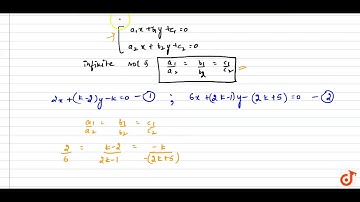 a₁x + b₁y + c₁ = 0
a₂x + b₂y + c₂ = 0
infinite sol's a₁/a₂ = b₁/b₂ = c₁/c₂
2x + (k-2)y - k = 0 - ① ; 6x + (2k-1)y - (2k+5) = 0 - ②
a₁/a₂ = b₁/b₂ = c₁/c₂
2/6 = k-2/2k-1 = -k/-(2k+5)